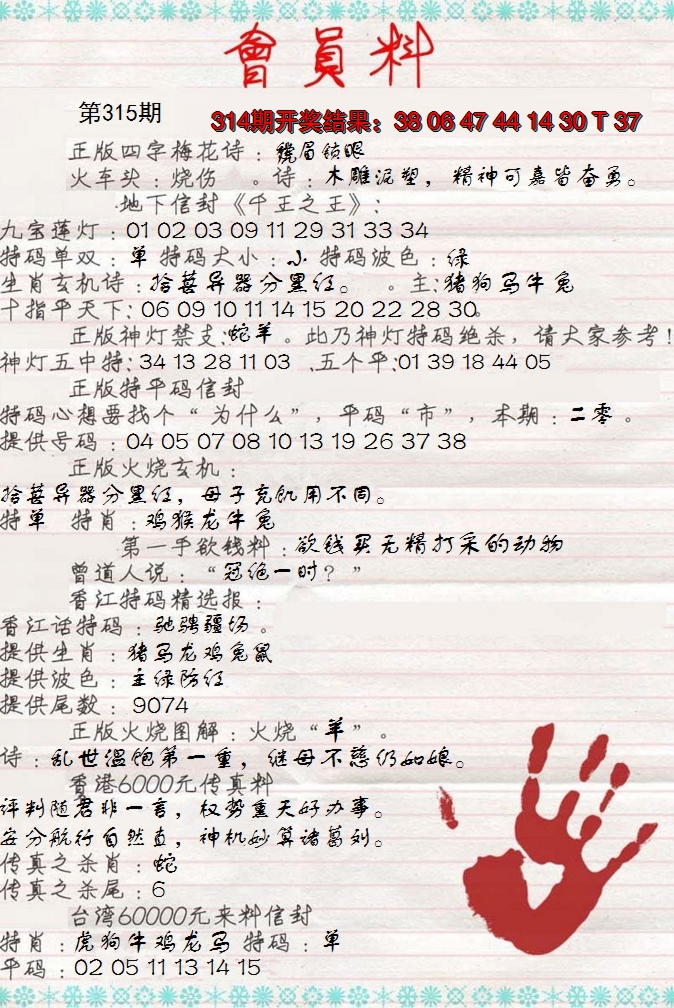 會員料
第315期
314期开奖结果：38 06 47 44 14 30 T 37
正版四字梅花诗：镜眉锁眼
火车头：烧伤 。诗：木雕泥塑，精神可嘉皆奋勇。
地下信封《千王之王》：
九宝莲灯：01 02 03 09 11 29 31 33 34
特码单双：单 特码大小：小 特码波色：绿
生肖玄机诗：拾葚异器分黑红。 。主：猪狗马牛兔
十指平天下：06 09 10 11 14 15 20 22 28 30。
正版神灯禁支：蛇羊。此乃神灯特码绝杀，请大家参考！
神灯五中特：34 13 28 11 03 、五个平：01 39 18 44 05
正版特平码信封
特码心想要找个“为什么”，平码“市”，本期：二零。
提供号码：04 05 07 08 10 13 19 26 37 38
正版火烧玄机：
拾葚异器分黑红，母子充饥用不同。
特单 特肖：鸡猴龙牛兔
第一手欲钱料：欲钱买无精打采的动物
曾道人说：“冠绝一时？”
香江特码精选报：
香江话特码：驰骋疆场。
提供生肖：猪马龙鸡兔鼠
提供波色：主绿防红
提供尾数：9074
正版火烧图解：火烧“羊”。
诗：乱世温饱第一重，继母不慈仍如娘。
香港6000元传真料
评判随君非一言，权势重天好办事。
安分航行自然直，神机妙算诸葛刘。
传真之杀肖：蛇
传真之杀尾：6
台湾60000元来料信封
特肖：虎狗牛鸡龙马 特码：单
平码：02 05 11 13 14 15